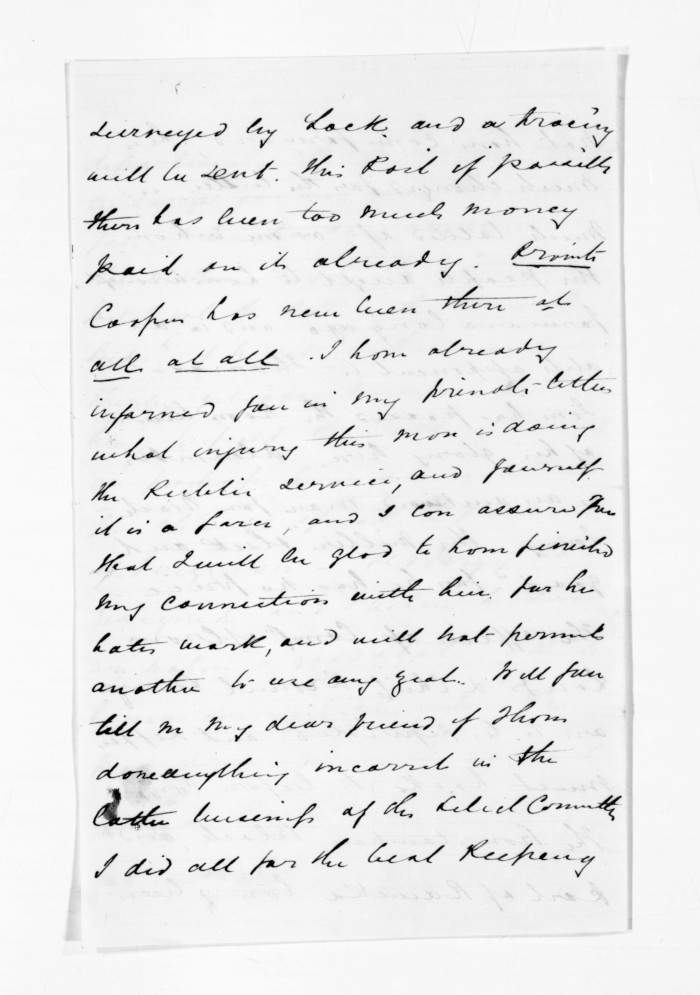 surveyed by Lock and a tracing
will be sent. this Post if possible
there has been too much money
paid on it already. Private
Cooper has never been there at
all at all. I have already
informed you in my private letter
what injury this man is doing
the Public service, and yourself
it is a farce, and I can assure you
that I will be glad to have finished
my connection with him for he
hates work, and will not permit
another to use any zeal. Will you
tell me my dear friend if I have
done anything incorrect in the
Cattle business of the Select Committee
I did all for the best Keeping